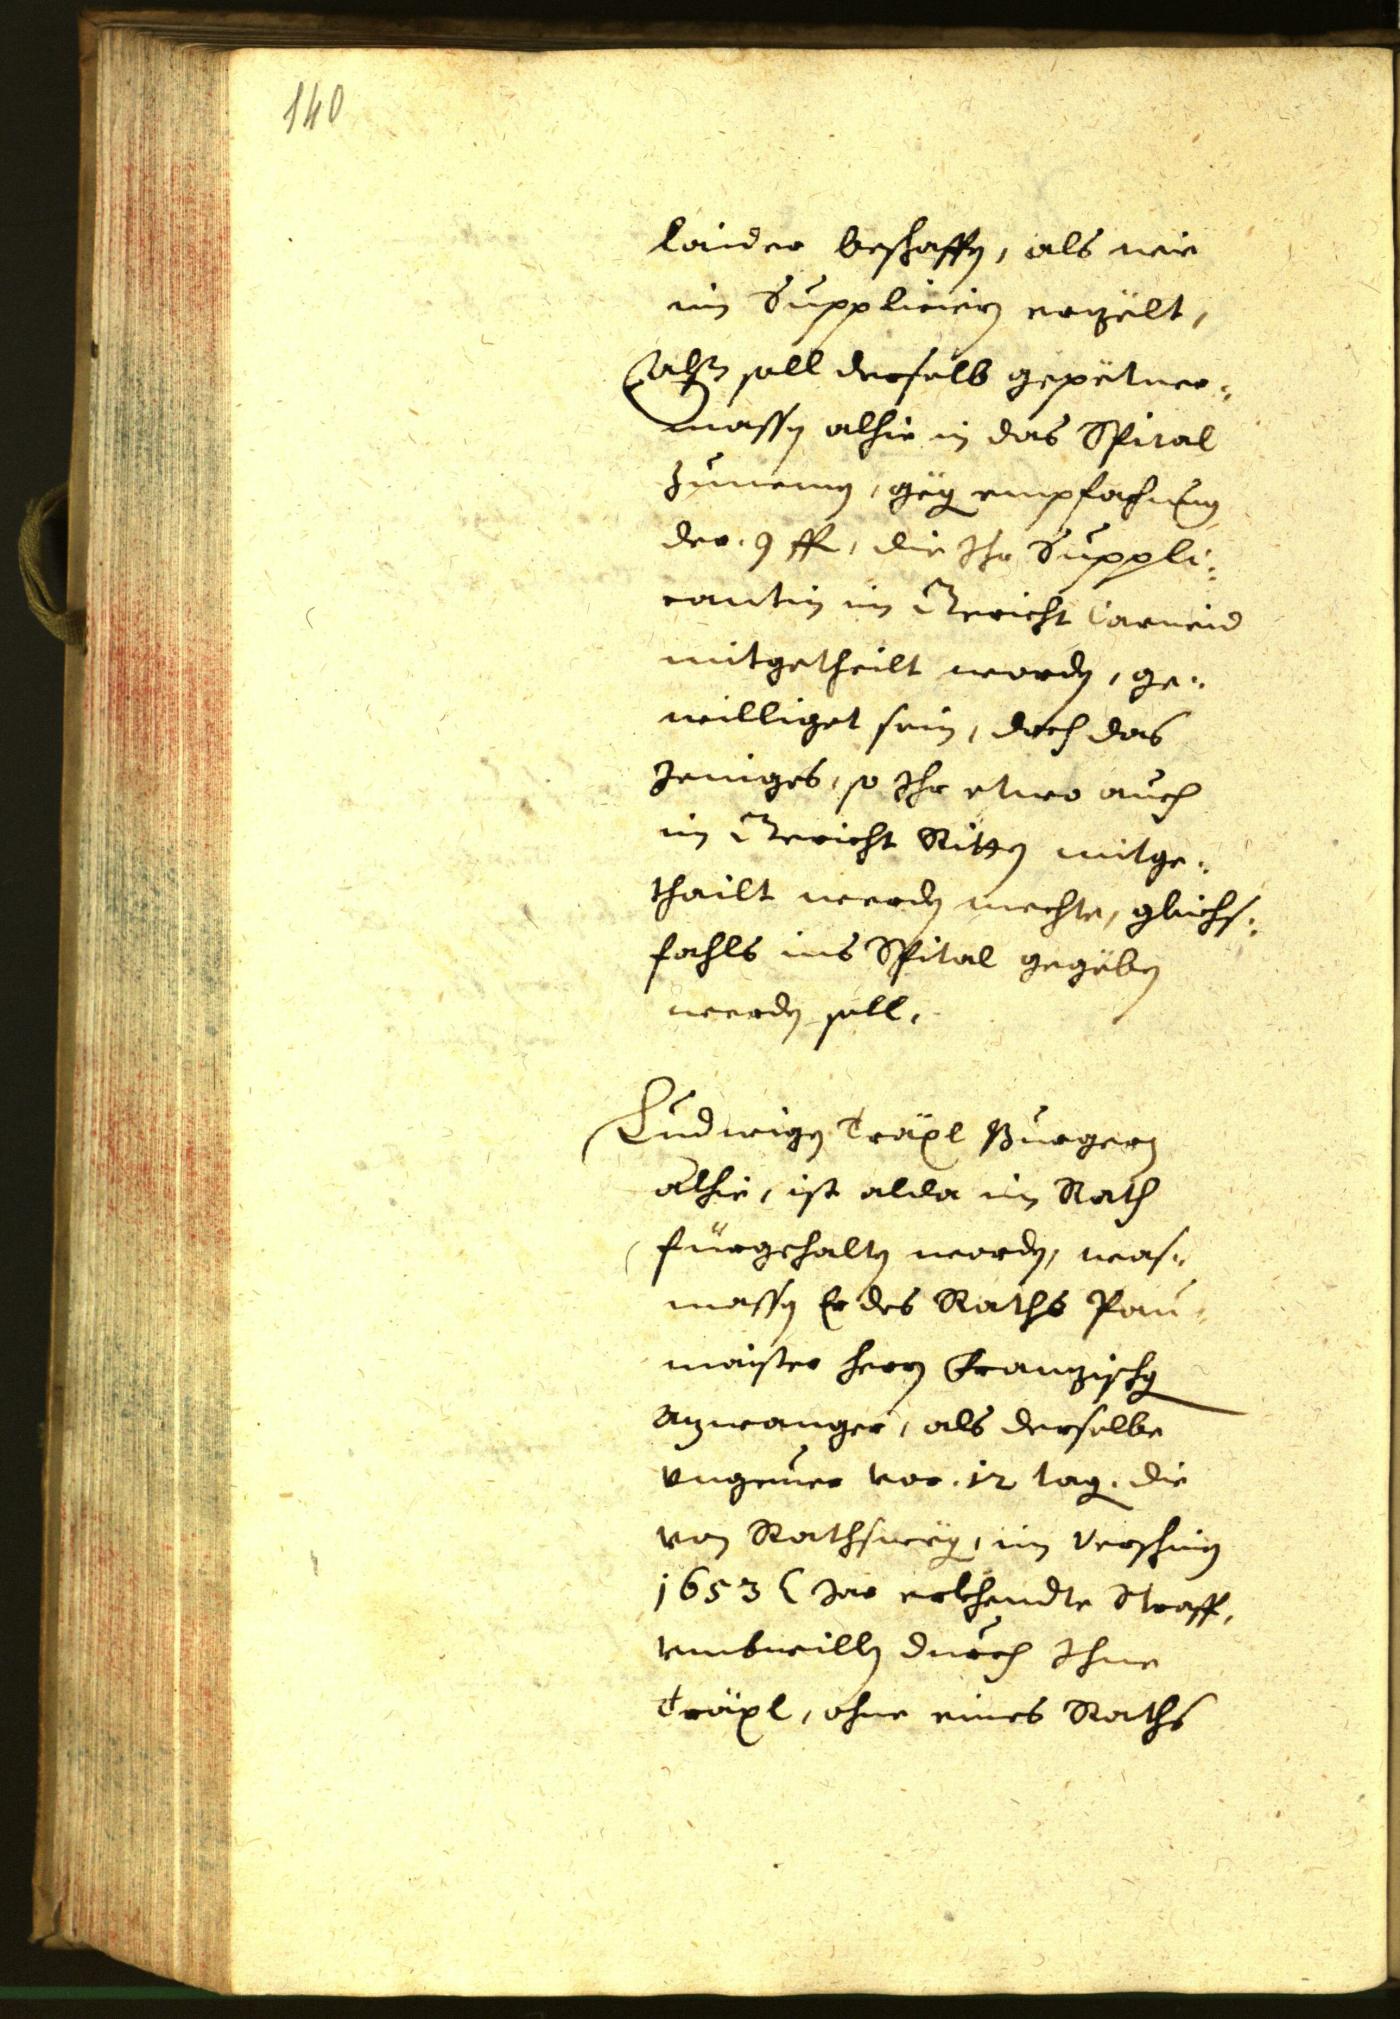 140
laider beschaffen, als wie
im Supplicirn erzëlt,
als soll derselb gepëtner¬
massen alhie in das Spital
zunemen, gëgen empfachung
der 9 ff, die Ihr Suppli¬
cantin im Gericht Carneid
mitgetheilt worden, ge¬
williget sein, doch das
Jeniges, so Ihr etwo auch
im Gericht Ritten mitge¬
thailt werden mechte, gleichs¬
fahls ins Spital gegëben
werden soll.
Ludwigen Träxl Burgern
alhie, ist alda im Rath
fürgehalten worden, was¬
massen Er des Raths Pau¬
maister herrn Franzischgen
Azwanger, als derselbe
vngeuer vor 12 tag. die
von Rathswëgen, im Verschinen
1653 Jar erkhendte Straff,
vmbwillen durch Ihne
Träxl, ohne eines Raths